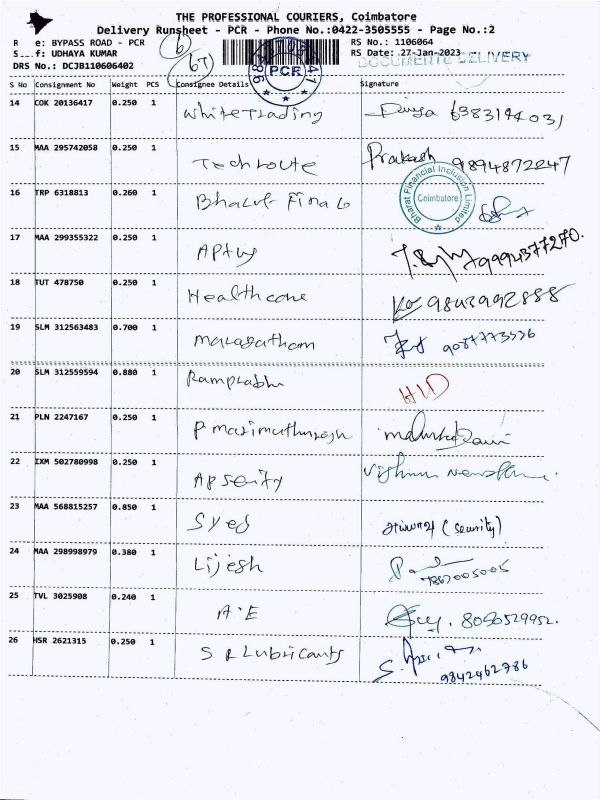 THE PROFESSIONAL COURIERS, Coimbatore
Delivery Runsheet - PCR - Phone No.:0422-3505555 - Page No.:2
R e: BYPASS ROAD - PCR RS No.: 1106064
S f: UDHAYA KUMAR RS Date: 27-Jan-2023
DRS No.: DCJB110606402 DOCUMENTS DELIVERY
PCR
S No Consignment No Weight PCS Consignee Details Signature
14 COK 20136417 0.250 1 White Trading Divya
15 MAA 295742058 0.250 1 Tech route Prakash 9894872247
16 TRP 6318813 0.260 1 Bharat Financial Inclusion Limited Coimbatore
17 MAA 299355322 0.250 1 7994377270.
18 TUT 478750 0.250 1 Healthcare 9843992888
19 SLM 312563483 0.700 1 maragatham 9087773536
20 SLM 312559594 0.880 1 Ramprabhu HID
21 PLN 2247167 0.250 1 P marimuthu
22 IXM 502780998 0.250 1
23 MAA 568815257 0.850 1 Syed (security)
24 MAA 298998979 0.380 1 Lijesh 7867005005
25 TVL 3025908 0.240 1 A.E 8050529952.
26 HSR 2621315 0.250 1 S R Lubricants 9842462786